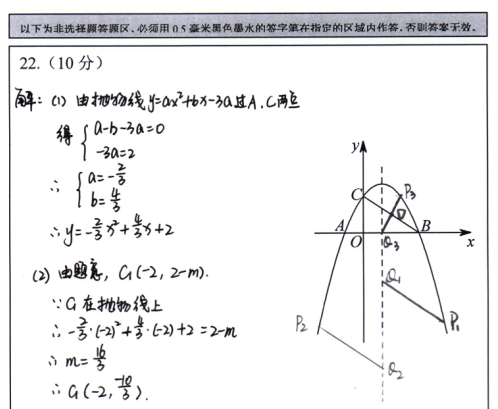 以下为非选择题答题区，必须用 0.5 毫米黑色墨水的签字笔在指定的区域内作答，否则答案无效。
22.（10 分）
解：(1) 由抛物线 y=ax²+bx-3a 过 A、C 两点
得 { a-b-3a=0
-3a=2
∴ { a=-2/3
b=4/3
∴ y=-2/3x²+4/3x+2
(2) 由题意，C₁(-2, 2-m).
∵ C₁ 在抛物线上
∴ -2/3·(-2)²+4/3·(-2)+2=2-m
∴ m=16/3
∴ C₁(-2, -10/3).
y
C
P3
D
A
O
Q3
B
x
Q1
P1
P2
Q2